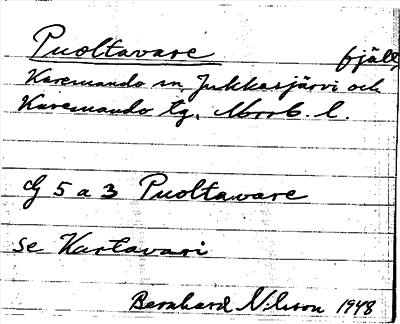 Puoltavare fjäll,
Karesuando sn, Jukkasjärvi och
Karesuando tg, Norrb. l.
dg 5 a 3 Puoltavare
se Kartavari
Bernhard Nilsson 1948